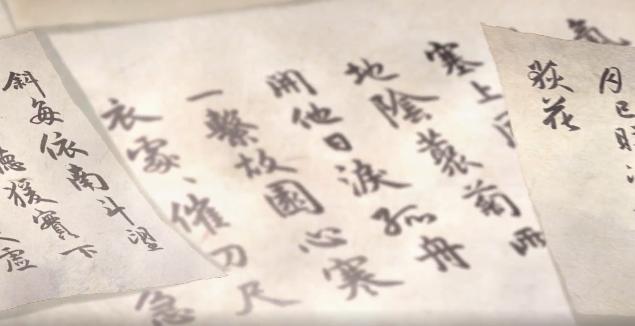 月已映
荻花
氣
塞上
地陰叢菊兩
開他日淚孤舟
一繫故園心寒
衣家、催刀尺
急
斜每依南斗望
聽猿實下
虛